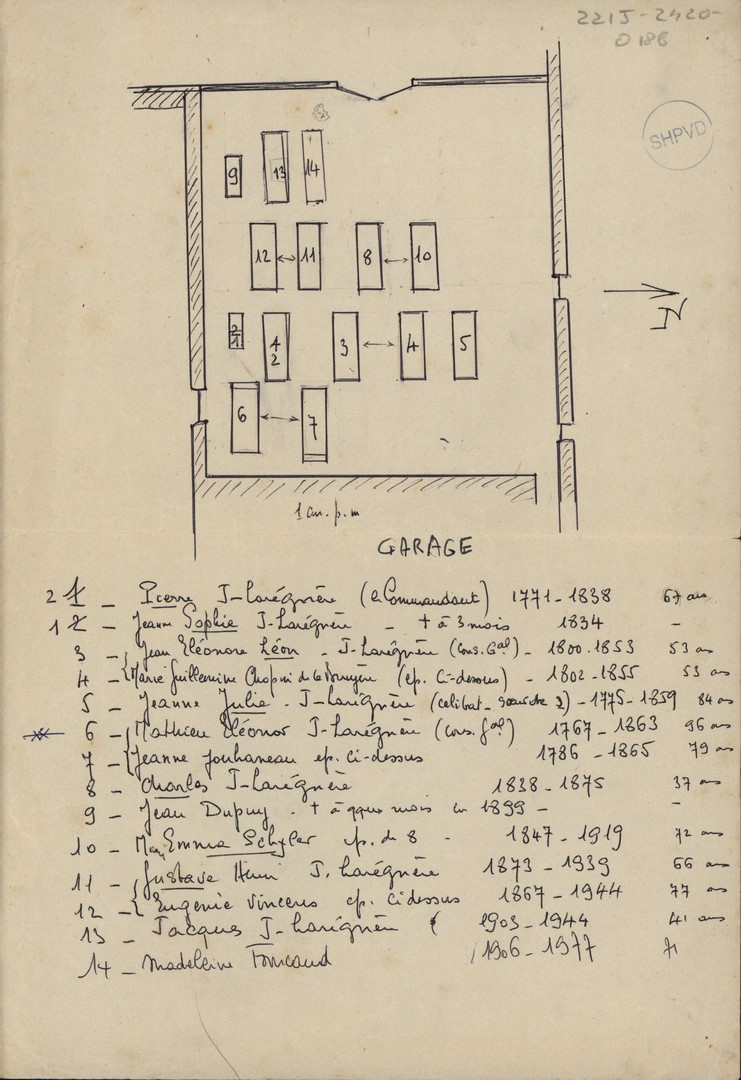 221J-2420-
D 18B
SHPVD
9 13 14
12 11 8 10
2 1 1 2 3 4 5
6 7
N
1 cm. p. m
GARAGE
2 1 _ Pierre J-Larégnère (le Commandant) 1771-1838 67 ans
1 2 _ Jeanne Sophie J-Larégnère _ + à 3 mois 1834 -
3 _ Jean Eléonore Léon - J-Larégnère (Cons. Gal) - 1800-1853 53 ans
4 _ Marie Guillemine de (ep. Ci-dessous) - 1802-1855 53 ans
5 - Jeanne Julie - J-Larégnère (celibat - 2) - 1775-1859 84 ans
6 - Mathieu Eléonor J-Larégnère (cons. Gal) 1767-1863 96 ans
7 - Jeanne Jouhaneau ep. ci-dessus 1786-1865 79 ans
8 - Charles J-Larégnère 1838-1875 37 ans
9 - Jean Dupuy - + à qques mois en 1899 - -
10 - Emma Schyler ep. de 8 - 1847-1919 72 ans
11 - Gustave Henri J. Larégnère 1873-1939 66 ans
12 - Eugenie Vincens ep. ci dessus 1867-1944 77 ans
13 - Jacques J-Larégnère 1903-1944 41 ans
14 - Madeleine Foucaud 1906-1977 71